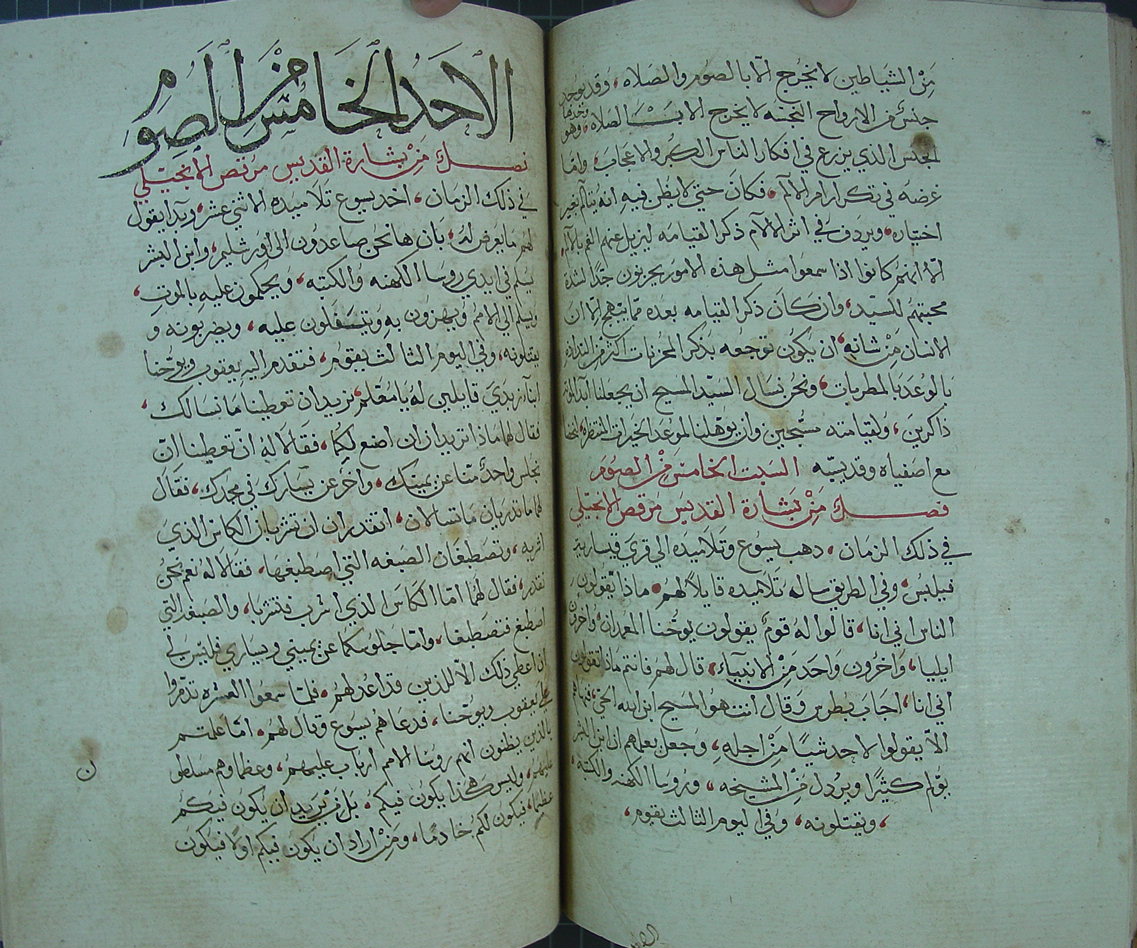 مِنْ الشياطين لا تخرج الّا بالصوم والصلاه، وقد يوجد
جنسٌ من الارواح النجسه لا يخرج الا بالصلاه وحدها وهو
الجنس الذي يزرع في افكار الناس الكبر والاعجاب، وامّا
غرضه في تكرار امر الآلام، فكان حتى لا يظن فيه انه يتألم بغير
اختياره، ويردف في اثر الالام ذكر القيامه ليزيل عنهم الغم بالآلام
الّا انهم كانوا اذا سمعوا مثل هذه الامور يحزنون جدًا لشدة
محبتهم للسيّد، وان كان ذكر القيامه بعده ممّا يبهج الا ان
الانسان مِنْ شانه، ان يكون توجعه بذكر المحزنات اكثر من التذاذه
بالوعد بالمطربات، ونحن نسال السيّد المسيح ان يجعلنا ابدًا لالامه
ذاكرين، ولقيامته مسبّحين وان يوهّلنا لموعد الخيرات المنتظره
مع اصفياه وقديسيّه السبت الخامس من الصوم
فصل مِنْ بشارة القديس مرقص الانجيلي
في ذلك الزمان، دهب يسوع وتلاميده الى قرى قيساريه
فيلبس، وفي الطريق ساله تلاميده قايلًا لهم، ماذا يقولون
الناس اني انا، قالوا له قومٌ يقولون يوحنا المعمدان، واخرون
ايليا، واخرون واحد مِنْ الانبياء، قال لهم فانتم ماذا تقولون
اني انا، اجاب بطرس وقال انت هو المسيح ابن الله الحي، فنهاهم
الّا يقولوا لاحد شيًا مِنْ اجله، وجعل يعلمهم ان ابن البشر
يولم كثيرًا ويردل مِنْ المشيخه، وروسا الكهنه والكتبه،
، ويقتلونه، وفي اليوم الثالث يقوم،
الاحد الخامس من الصوم
فصل مِنْ بشارة القديس مرقص الانجيلي
في ذلك الزمان، اخد يسوع تلاميده الاثنى عشر، وبدا يقول
لهم ما يعرض له، بان ها نحن صاعدون الى اورشليم، وابن البشر
يسلم في ايدي روسا الكهنه والكتبه، ويحكمون عليه بالموت،
ويسلم الى الامم ويهزون به ويتسفلون عليه، ويضربونه و
يقتلونه، وفي اليوم الثالث يقوم، فتقدم اليه يعقوب ويوحّنا
ابنا زبدي قايلين له يا معلّم نريد ان تعطينا ما نسالك،
فقال لهما ماذا تريدان ان اصنع لكما، فقالا له ان تعطينا انّ
نجلس واحدٌ منّا عن يمينك، واخر عن يسارك في مجدك، فقال
لهما ما تدريان ما تسالان، اتقدران ان تشربا الكاس الذي
اشربه، وتصطبغان الصبغه التي اصطبغها، فقالا له نعم نحن
نقدر، فقال لهما امّا الكاس الذي اشرب فتشربا، والصبغه التي
اصطبغ فتصطبغا، وامّا جلوسكما عن يميني ويساري فليس لي
ان اعطي ذلك الّا للذين قد اعد لهم، فلمّا سمعوا العشره تذمروا
على يعقوب ويوحّنا، فدعاهم يسوع وقال لهم، امّا علمتم
بالذين يظنون انهم روسا الامم ارباب عليهم، وعظماوهم مسلطو
عليهم، وليس هكذا يكون فيكم، بل من يريد ان يكون فيكم
عظيمًا، فيكون لكم خادمًا، ومَنْ اراد ان يكون فيكم اولًا فيكون